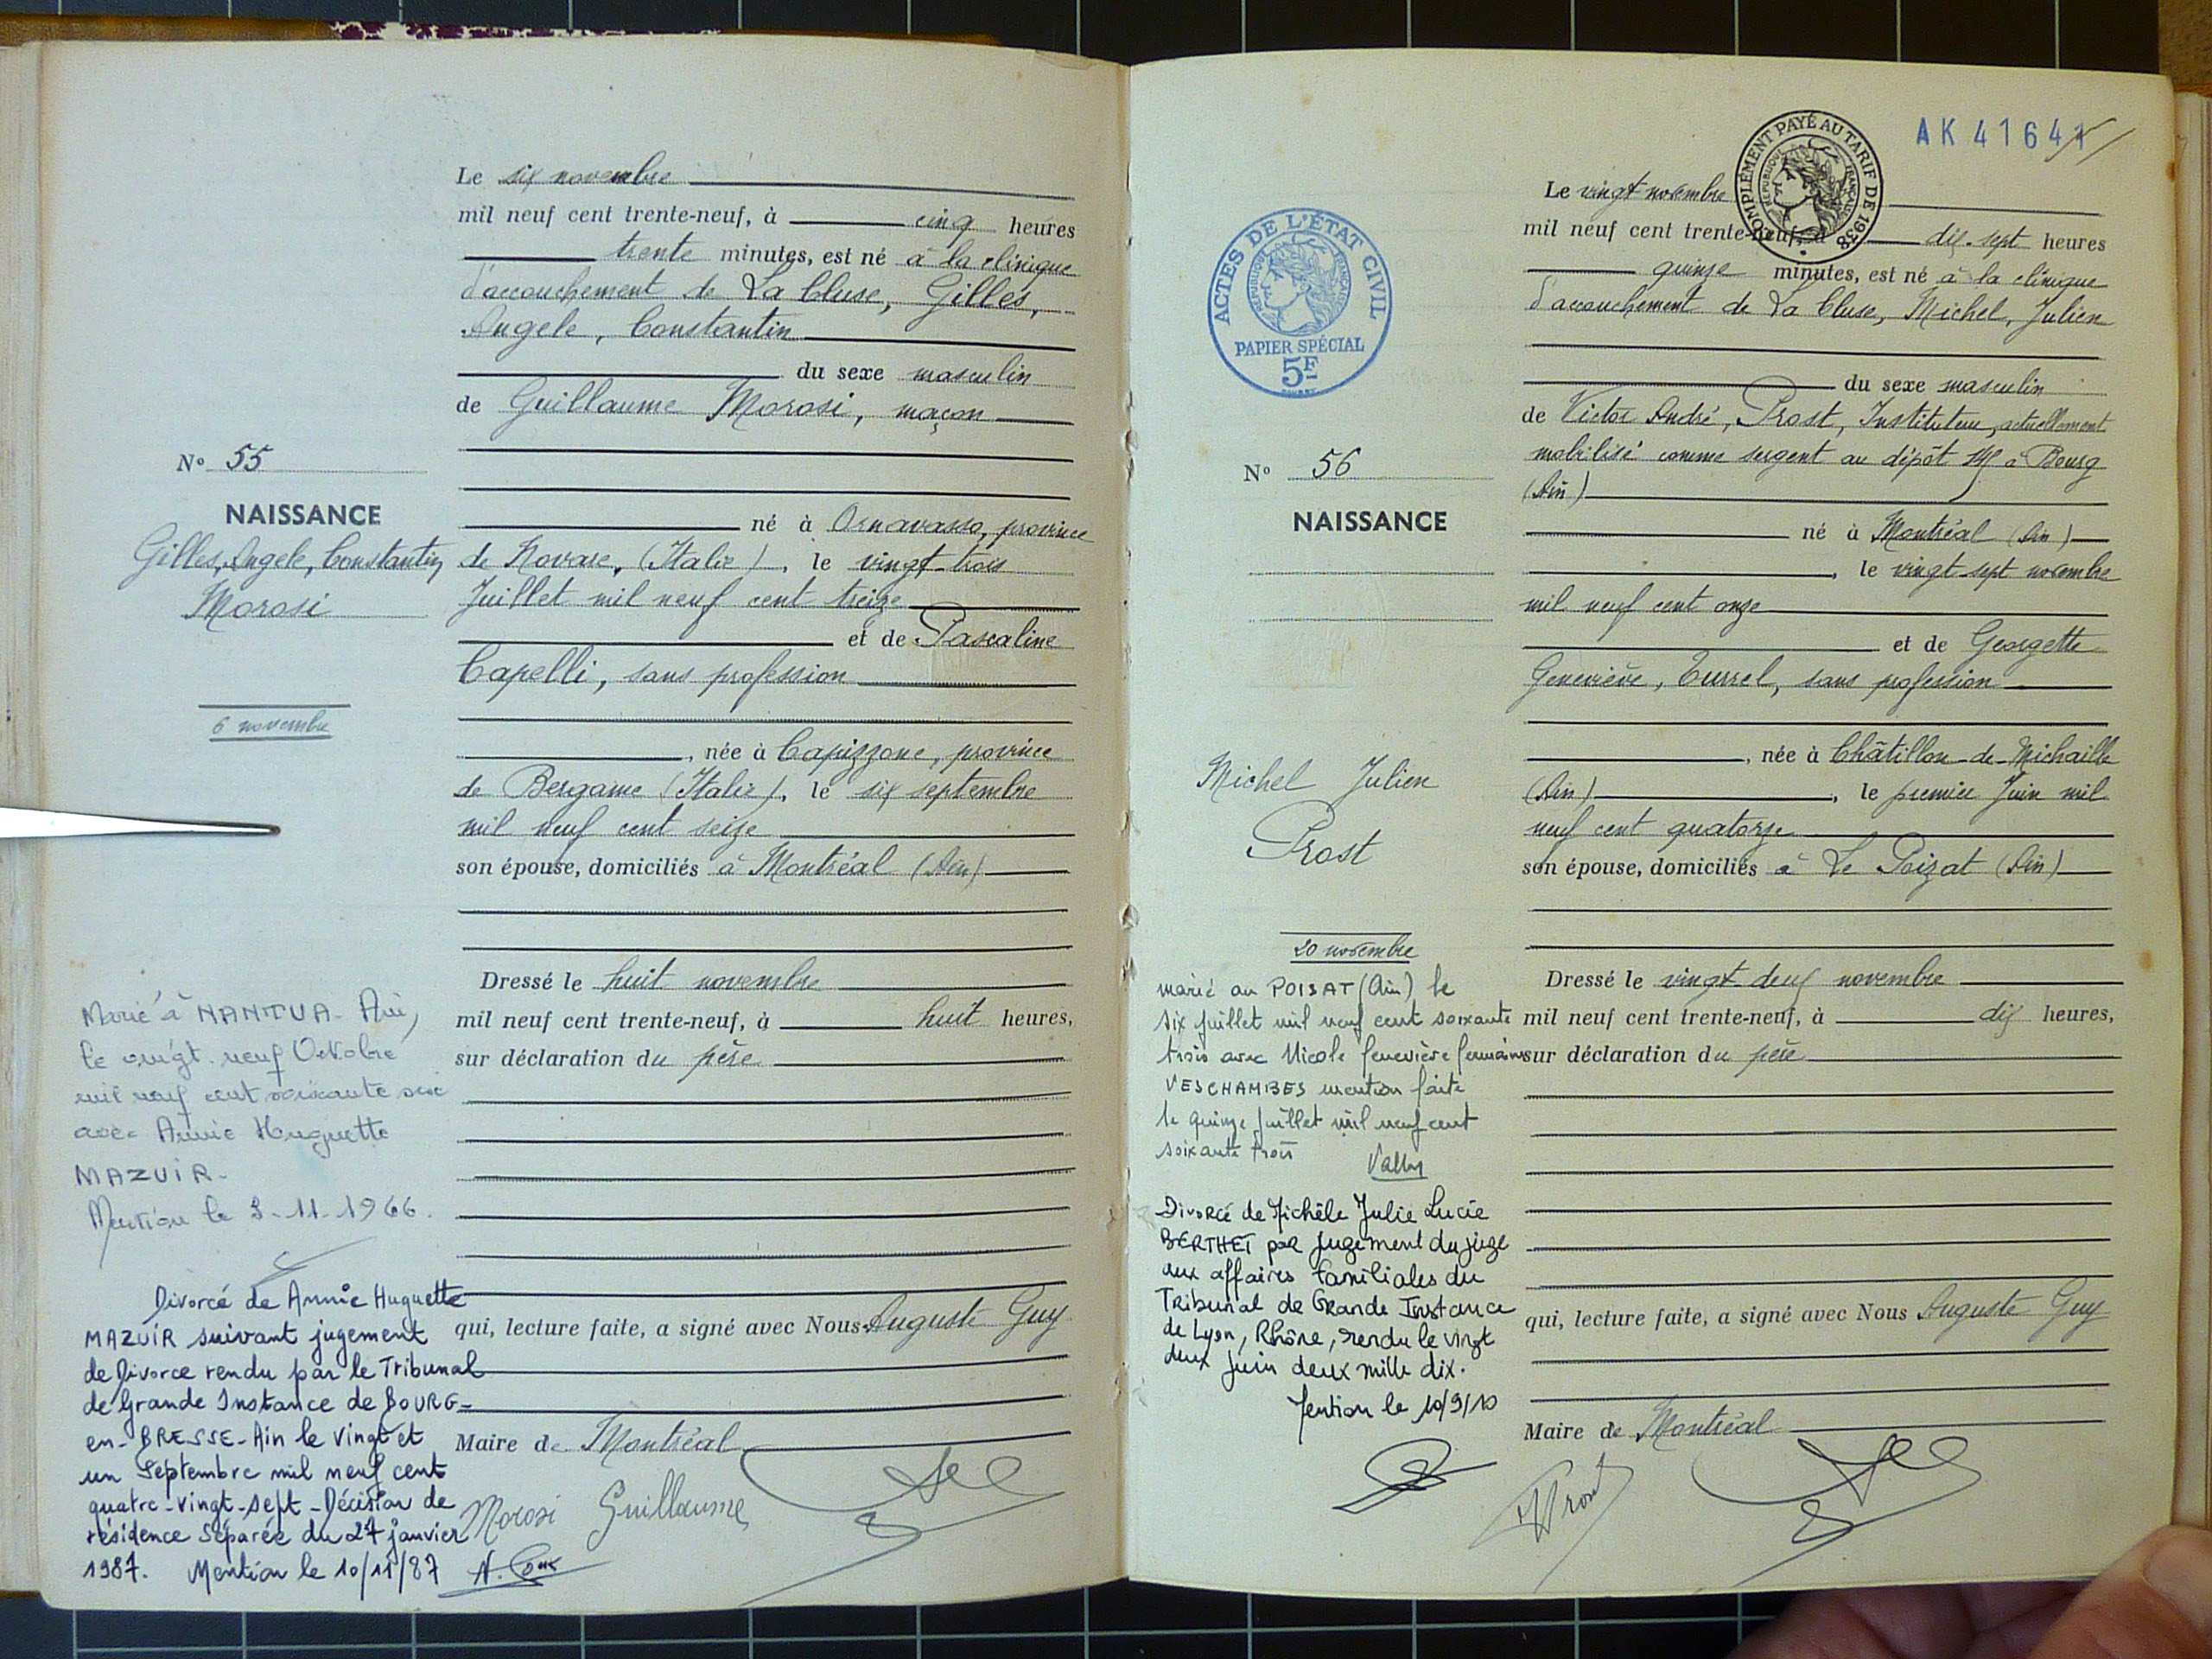 Le six novembre
mil neuf cent trente-neuf, à cinq heures
trente minutes, est né à la clinique
d'accouchement de La Cluse, Gilles,
Angele, Constantin
du sexe masculin
de Guillaume Morosi, maçon
N° 55
NAISSANCE
Gilles, Angele, Constantin
Morosi
6 novembre
né à Ornavasso, province
de Novare, (Italie), le vingt-trois
Juillet mil neuf cent treize
et de Pascaline
Capelli, sans profession
, née à Capizzone, province
de Bergame (Italie), le six septembre
mil neuf cent seize
son épouse, domiciliés à Montréal (Ain)
Dressé le huit novembre
mil neuf cent trente-neuf, à huit heures,
sur déclaration du père
Marié à NANTUA - Ain,
le vingt-neuf Octobre
mil neuf cent soixante six
avec Annie Huguette
MAZUIR-
Mention le 3-11-1966.
Divorcé de Annie Huguette
MAZUIR suivant jugement
de Divorce rendu par le Tribunal
de Grande Instance de BOURG-
en-BRESSE-Ain le vingt et
un Septembre mil neuf cent
quatre-vingt-sept - Décision de
résidence séparée du 27 janvier
1987. Mention le 10/11/87
qui, lecture faite, a signé avec Nous Auguste Guy
Maire de Montréal
Morosi Guillaume
AK 41641
COMPLÉMENT PAYÉ AU TARIF DE 1938
RÉPUBLIQUE FRANÇAISE
ACTES DE L'ÉTAT CIVIL
RÉPUBLIQUE FRANÇAISE
PAPIER SPÉCIAL
5F
Le vingt novembre
mil neuf cent trente-neuf, à dix-sept heures
quinze minutes, est né à la clinique
d'accouchement de La Cluse, Michel, Julien
du sexe masculin
de Victor André, Prost, Instituteur, actuellement
mobilisé comme sergent au dépôt à Bourg
(Ain)
N° 56
NAISSANCE
né à Montréal (Ain)
, le vingt sept novembre
mil neuf cent onze
et de Georgette
Geneviève, Turrel, sans profession
, née à Châtillon-de-Michaille
(Ain), le premier Juin mil
neuf cent quatorze
son épouse, domiciliés à Le Poizat (Ain)
Michel Julien
Prost
20 novembre
Dressé le vingt deux novembre
mil neuf cent trente-neuf, à dix heures,
sur déclaration du père
marié au POISAT (Ain) le
six juillet mil neuf cent soixante
trois avec Nicole Geneviève Germaine
VESCHAMBES mention faite
le quinze juillet mil neuf cent
soixante trois
Divorcé de Michèle Julie Lucie
BERTHET par jugement du juge
aux affaires familiales du
Tribunal de Grande Instance
de Lyon, Rhône, rendu le vingt
deux juin deux mille dix.
Mention le 10/9/10
qui, lecture faite, a signé avec Nous Auguste Guy
Maire de Montréal